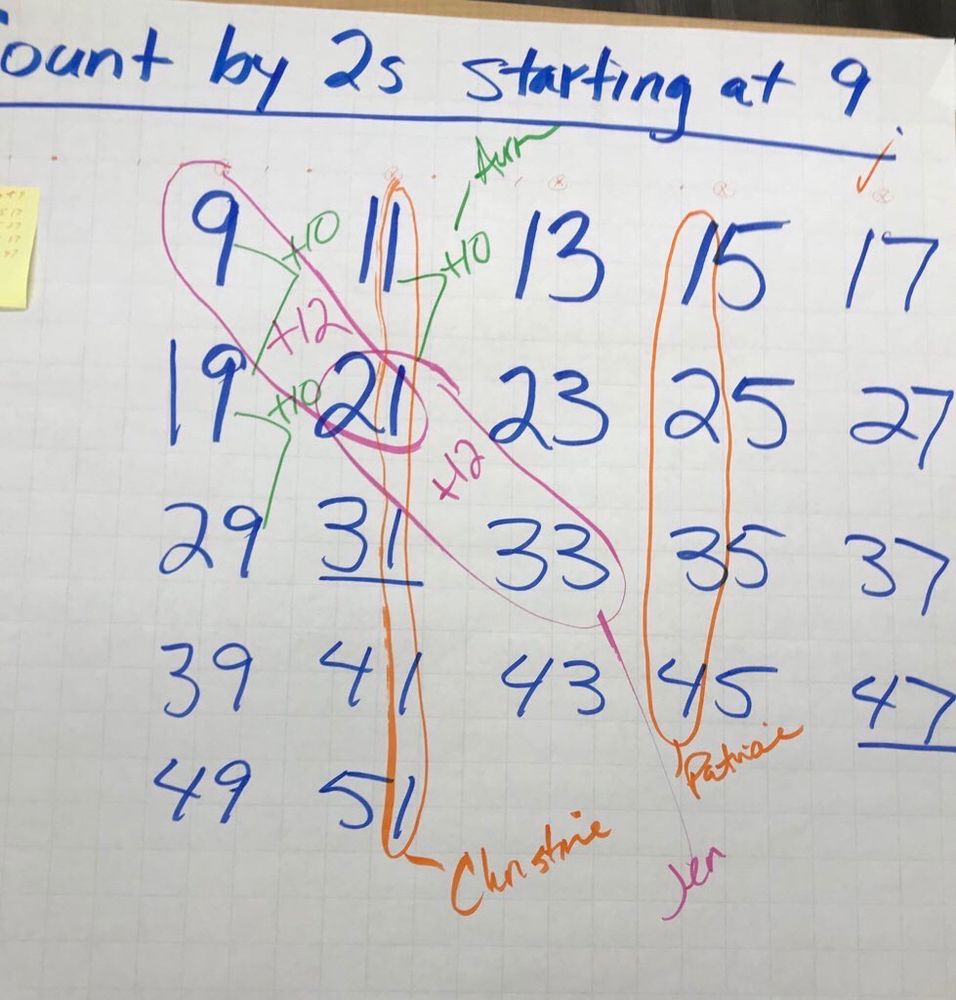 ount by 2s starting at 9.
+10
9 11 +10 13 15 17
+12
19 21 23 25 27
+10
+12
29 31 33 35 37
39 41 43 45 47
49 51
Christine
Jen